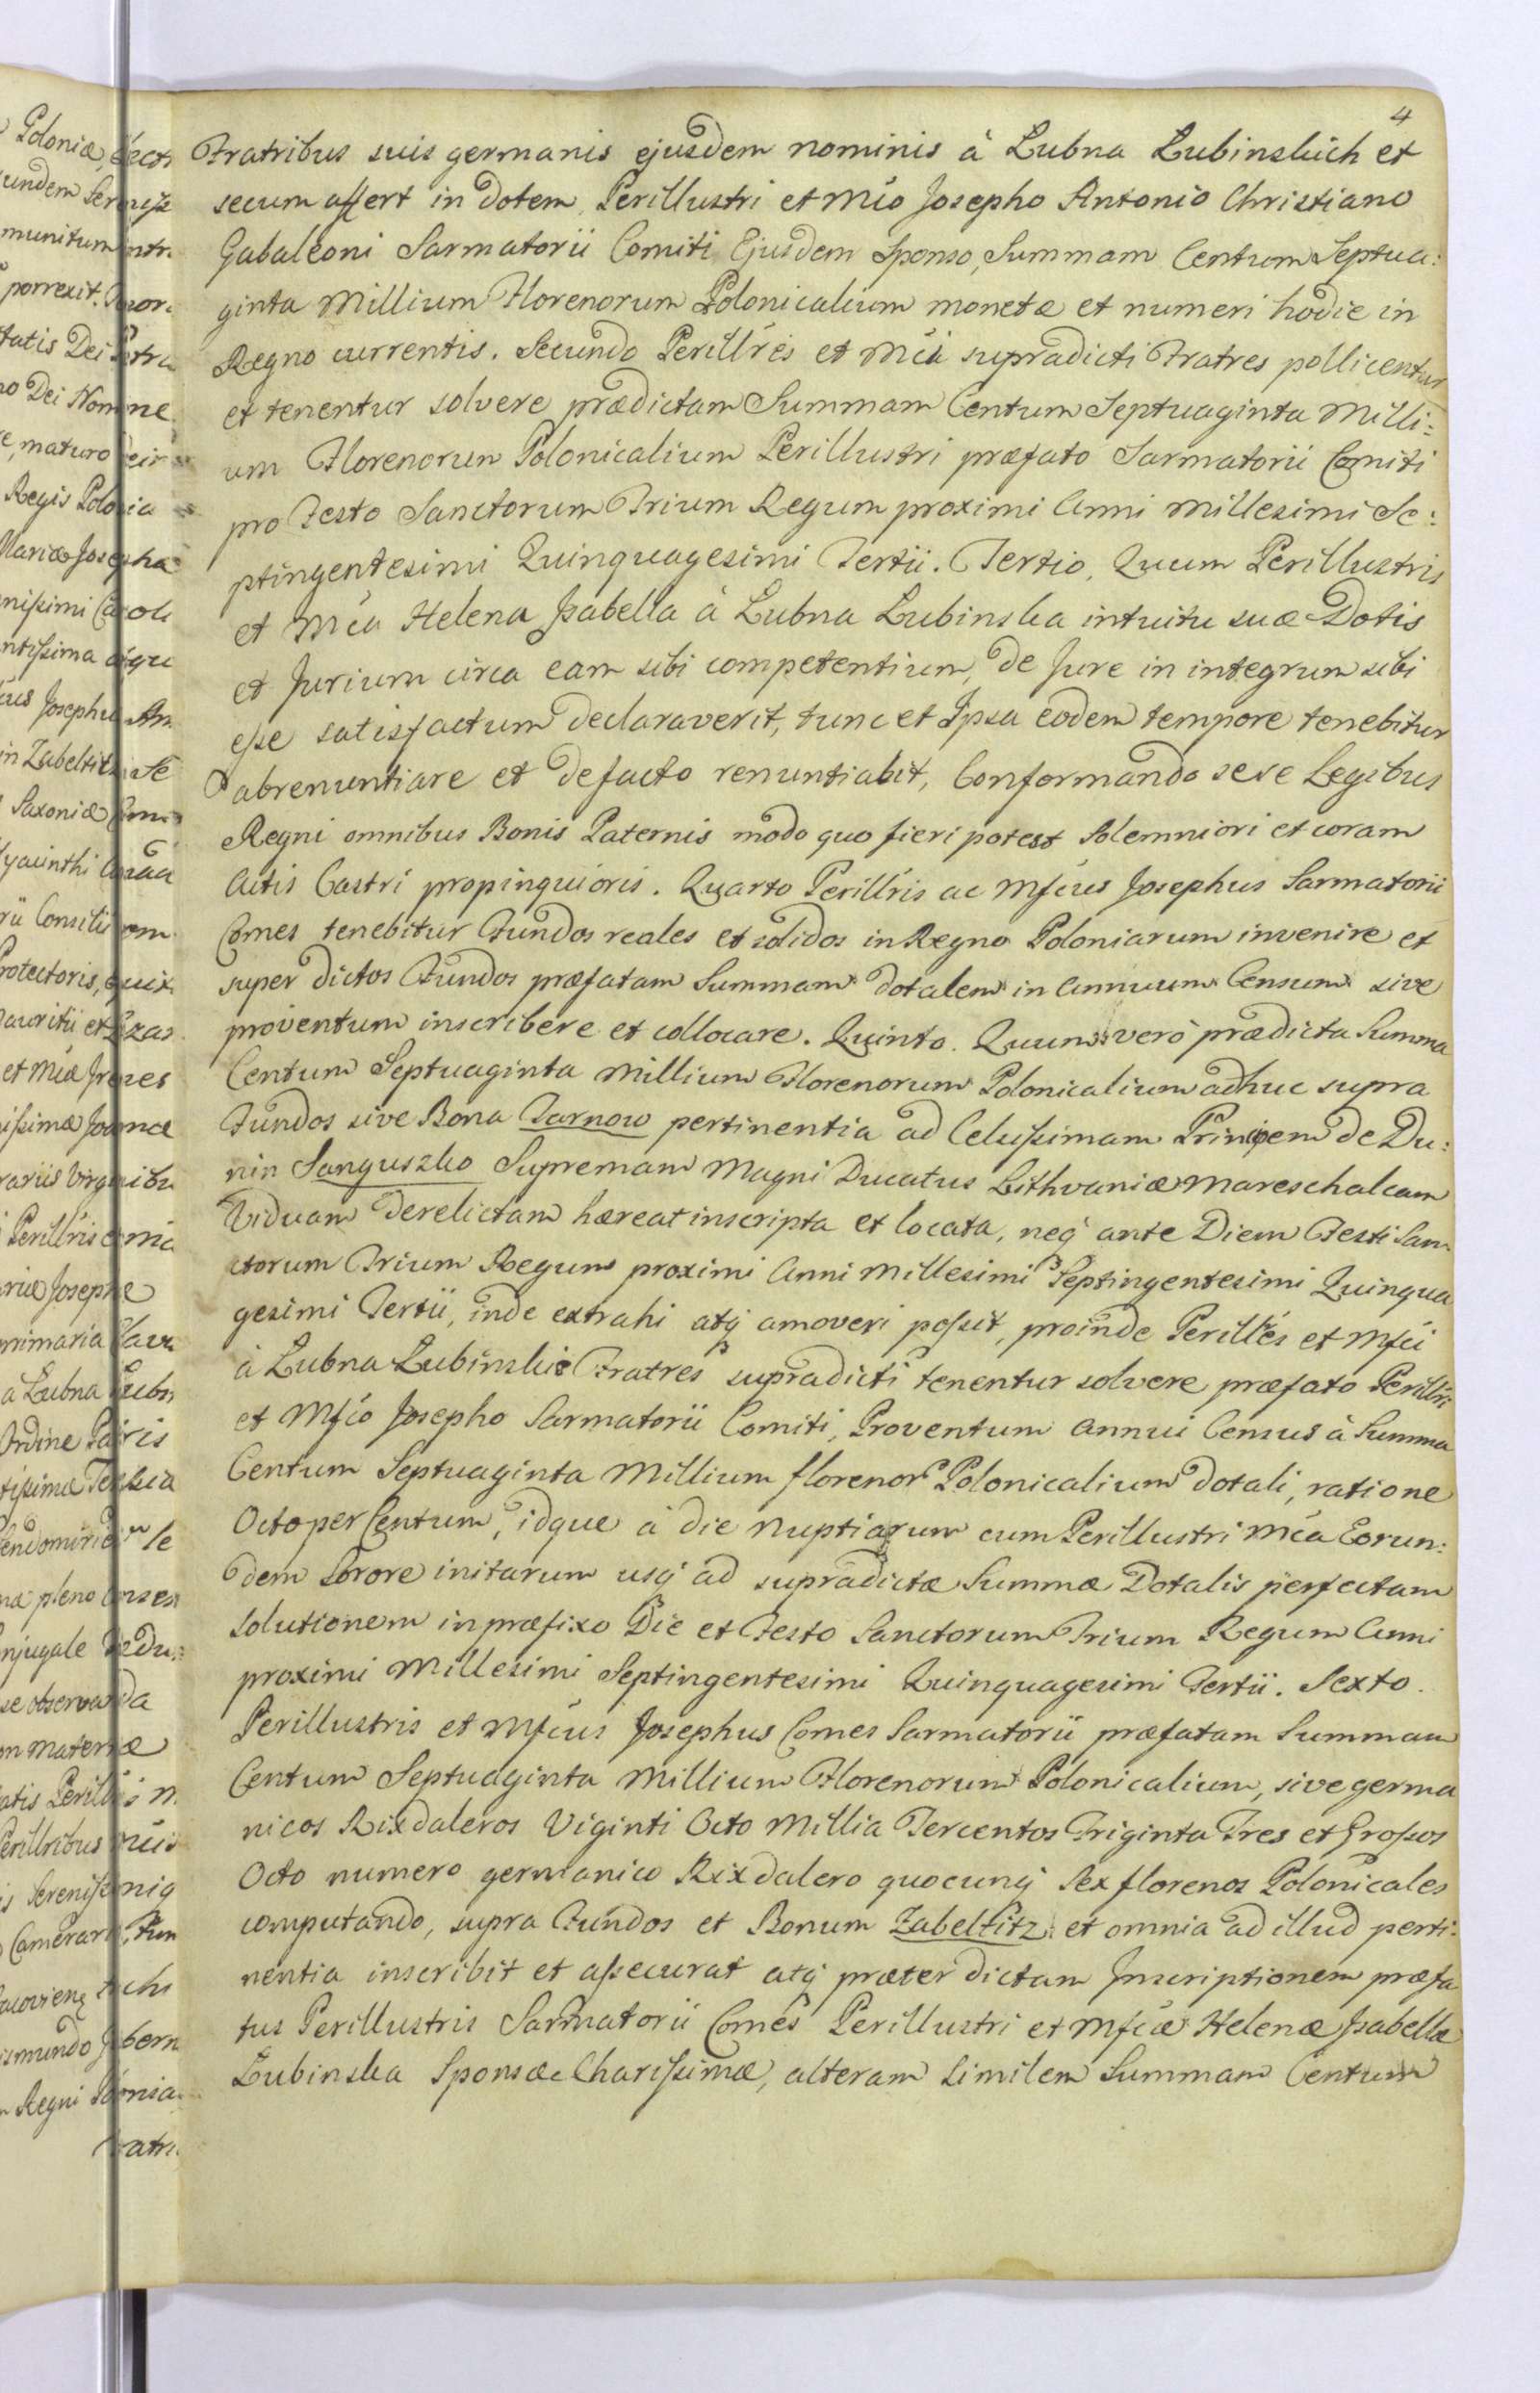 4
Fratribus suis germanis ejusdem nominis à Lubna Lubinskich et
secum affert in dotem, Perillustri et Mćo Josepho Antonio Christiano
Gabaleoni Sarmatorii Comiti Ejusdem Sponso, Summam Centum Septua:
ginta Millium Florenorum Polonicalium monetæ et numeri hodie in
Regno currentis. Secundo Perillŕes et Mći supradicti Fratres pollicentur
et tenentur solvere prædictam Summam Centum Septuaginta Milli:
um Florenorum Polonicalium Perillustri præfato Sarmatorii Comiti
pro Festo Sanctorum Trium Regum proximi Anni Millesimi Se:
ptingentesimi Quinquagesimi Tertii. Tertio, Quum Perillustris
et Mća Helena Isabella à Lubna Lubinska intuitu suæ Dotis
et Jurium circa eam sibi competentium, de Jure in integrum sibi
esse satisfactum declaraverit, tunc et Ipsa eodem tempore tenebitur
abrenuntiare et defacto renuntiabit, Conformando sese Legibus
Regni omnibus Bonis Paternis modo quo fieri potest solemniori et coram
Actis Castri propinquioris. Quarto Perillŕis ac Mfćus Josephus Sarmatorii
Comes tenebitur Fundos reales et solidos in Regno Poloniarum invenire et
super dictos Fundos præfatam Summam dotalem in Annuum Censum sive
proventum inscribere et collocare. Quinto. Quum verò prædicta Summa
Centum Septuaginta Millium Florenorum Polonicalium adhuc supra
Fundos sive Bona Tarnow pertinentia ad Celsissimam Principem de Du:
nin Sanguszko Supremam Magni Ducatus Lithvaniæ Mareschalcam
Viduam derelictam hæreat inscripta et locata, neq ante Diem Festi San
ctorum Trium Regum proximi Anni Millesimi Septingentesimi Quinqua
gesimi Tertii, inde extrahi atq amoveri possit, proinde Perillŕes et Mfći
à Lubna Lubinskie Fratres supradicti tenentur solvere præfato Perillŕi
et Mfćo Josepho Sarmatorii Comiti, Proventum annui Census à Summa
Centum Septuaginta Millium florenor Polonicalium dotali, ratione
Octo per Centum, idque à die Nuptiarum cum Perillustri Mća Eorun:
dem Sorore initarum usq ad supradictæ Summæ Dotalis perfectam
solutionem in præfixo Die et Festo Sanctorum Trium Regum Anni
proximi Millesimi Septingentesimi Quinquagesimi Tertii. Sexto.
Perillustris et Mfćus Josephus Comes Sarmatorii præfatam Summam
Centum Septuaginta Millium Florenorum Polonicalium, sive germa
nicos Rixdaleros Viginti Octo Millia Tercentos Triginta Tres et Grossos
Octo numero germanico Rixdalero quocunq sex florenos Polonicales
computando, supra Fundos et Bonum Zabeltitz et omnia ad illud perti:
nentia inscribit et assecurat atq præter dictam Inscriptionem præfa
tus Perillustris Sarmatorii Comes Perillustri et Mfćæ Helenæ Isabellæ
Lubinska Sponsæ Charissimæ, alteram similem Summam Centum